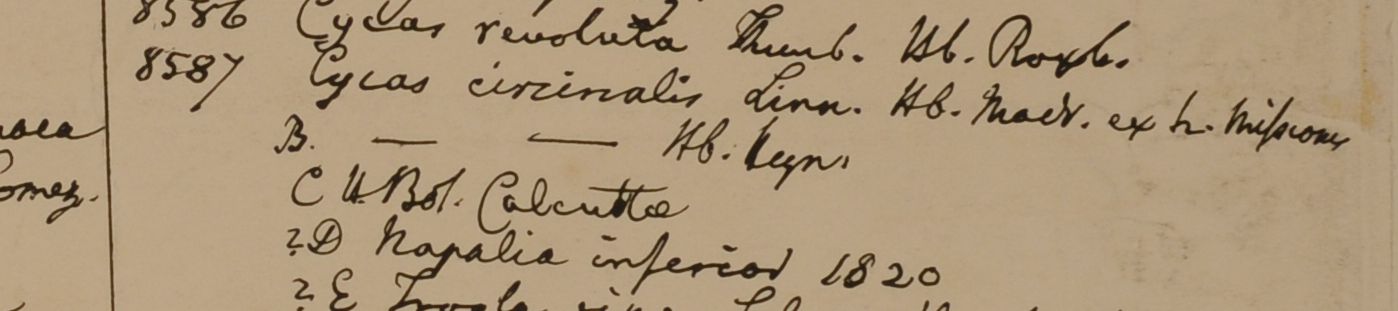 8586 Cycas revoluta Thunb. Hb. Roxb.
8587 Cycas circinalis Linn. Hb. Madr. ex h. Missionis
B. — — Hb. Heyn.
C H. Bot. Calcuttæ
?D Napalia inferior 1820
?E
omez.